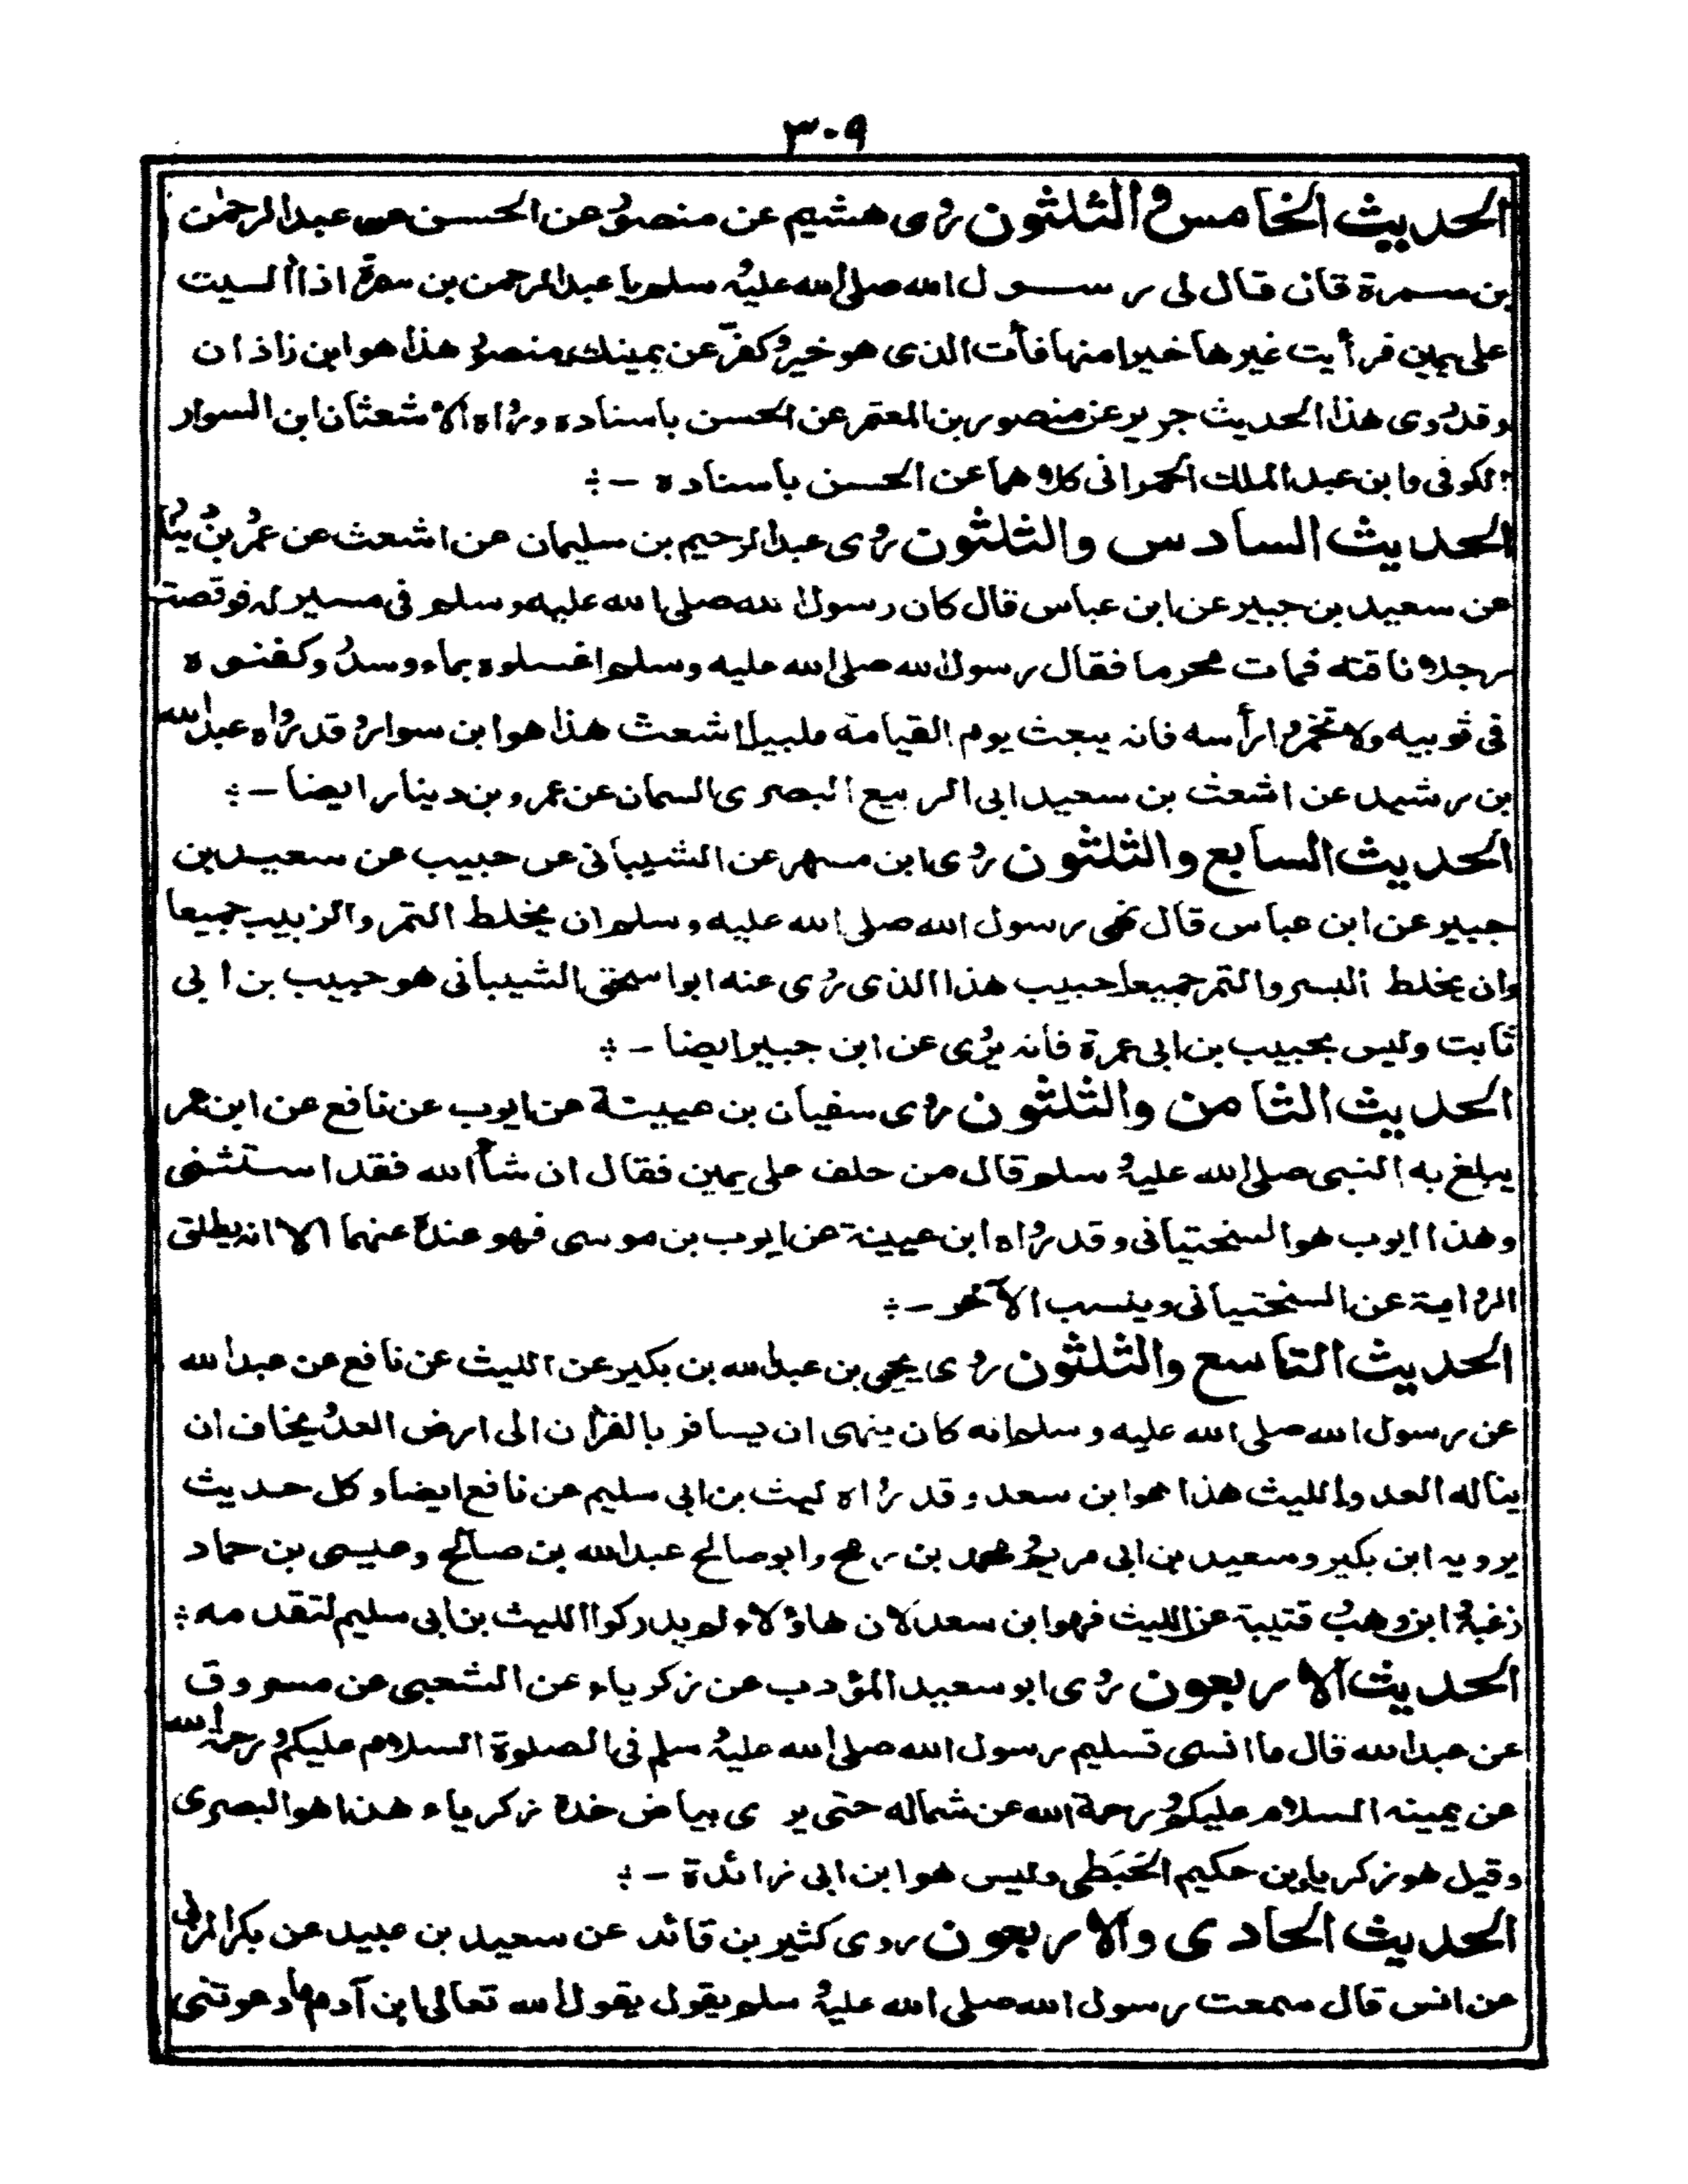 ٣٠٩
الحديث الخامس والثلثون روى هشيم عن منصور عن الحسن عن عبد الرحمٰن
بن سمرة قال قال لى رسول الله صلى الله عليه وسلم يا عبد الرحمن بن سمرة اذا آليت
على يمين فرأيت غيرها خيرا منها فأت الذى هو خير وكفّر عن يمينك، منصور هذا هو ابن زاذان
وقد روى هذا الحديث جرير عن منصور بن المعتمر عن الحسن باسناده ورواه الاشعثان ابن السوار
الكوفى وابن عبد الملك الحمرانى كلاهما عن الحسن باسناده -
الحديث السادس والثلثون روى عبد الرحيم بن سليمان عن اشعث عن عمرو بن دينار
عن سعيد بن جبير عن ابن عباس قال كان رسول الله صلى الله عليه وسلم فى مسير له فوقصت
رجلا ناقته فمات محرما فقال رسول الله صلى الله عليه وسلم اغسلوه بماء وسدر وكفنوه
فى ثوبيه ولا تخمروا رأسه فانه يبعث يوم القيامة ملبيا اشعث هذا هو ابن سوار وقد رواه عبد الله
بن رشيد عن اشعث بن سعيد ابى الربيع البصرى السمان عن عمرو بن دينار ايضا -
الحديث السابع والثلثون روى ابن مسهر عن الشيبانى عن حبيب عن سعيد بن
جبير عن ابن عباس قال نهى رسول الله صلى الله عليه وسلم ان يخلط التمر والزبيب جميعا
وان يخلط البسر والتمر جميعا حبيب هذا الذى روى عنه ابو اسحٰق الشيبانى هو حبيب بن ابى
ثابت وليس بحبيب بن ابى عمرة فانه يروى عن ابن جبير ايضا -
الحديث الثامن والثلثون روى سفيان بن عيينة عن ايوب عن نافع عن ابن عمر
يبلغ به النبى صلى الله عليه وسلم قال من حلف على يمين فقال ان شاء الله فقد استثنى
وهذا ايوب هو السختيانى وقد رواه ابن عيينة عن ايوب بن موسى فهو عنده عنهما الا انه يطلق
الرواية عن السختيانى وينسب الآخر -
الحديث التاسع والثلثون روى يحيى بن عبد الله بن بكير عن الليث عن نافع عن عبد الله
عن رسول الله صلى الله عليه وسلم انه كان ينهى ان يسافر بالقرآن الى ارض العدو يخاف ان
يناله العدو الليث هذا هو ابن سعد وقد رواه ليث بن ابى سليم عن نافع ايضا وكل حديث
يرويه ابن بكير وسعيد بن ابى مريم ومحمد بن رمح وابو صالح عبد الله بن صالح وعيسى بن حماد
زغبة وابن وهب وقتيبة عن الليث فهو ابن سعد لان هاؤلاء لم يدركوا الليث بن ابى سليم لتقدمه
الحديث الاربعون روى ابو سعيد المؤدب عن زكرياء عن الشعبى عن مسروق
عن عبد الله قال ما انسى تسليم رسول الله صلى الله عليه وسلم فى الصلوة السلام عليكم ورحمة الله
عن يمينه السلام عليكم ورحمة الله عن شماله حتى يرى بياض خده زكرياء هذا هو البصرى
وقيل هو زكريا بن حكيم الحَبَطى وليس هو ابن ابى زائدة -
الحديث الحادى والاربعون روى كثير بن قائد عن سعيد بن عبيد عن بكر المزنى
عن انس قال سمعت رسول الله صلى الله عليه وسلم يقول يقول الله تعالى ابن آدم ما دعوتنى